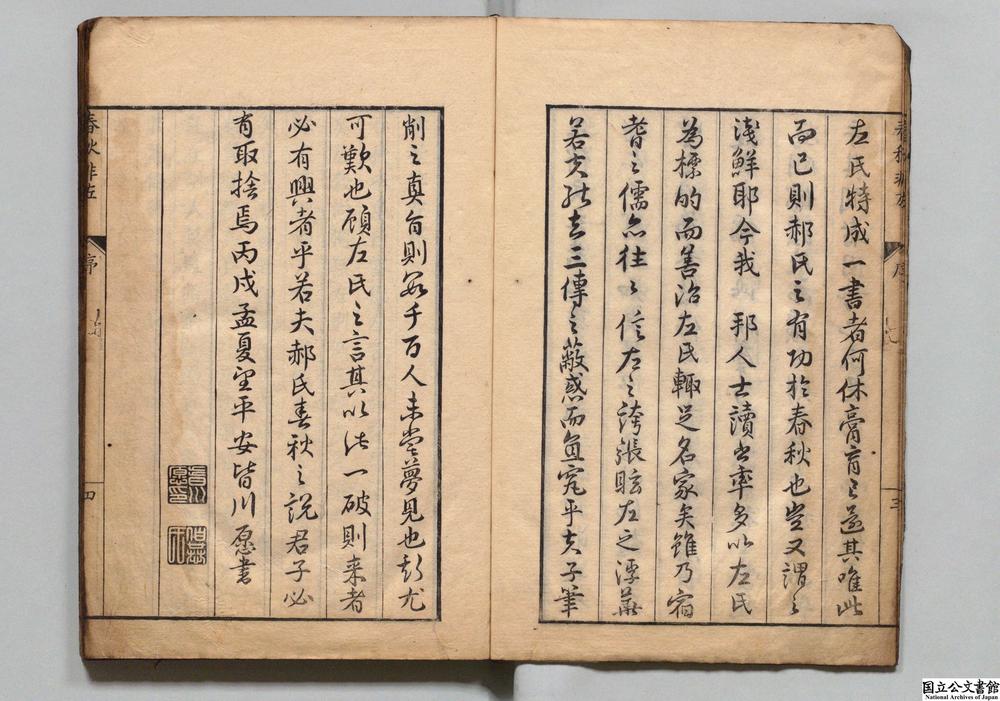 春秋非左
序
三
左氏特成一書者何休膏肓之遺其唯此
而已則郝氏之有功於春秋也豈又謂之
淺鮮耶今我邦人士讀書率多以左氏
為標的而善治左氏輒足名家矣雖乃宿
耆之儒亦往々信左之誇張眩左之浮華
若夫能去三傳之蔽惑而直究乎夫子筆
削之真旨則數千百人未嘗夢見也斯尤
可歎也顧左氏之言其以此一破則来者
必有興者乎若夫郝氏春秋之説君子必
有取捨焉丙戌孟夏望平安皆川愿書
春秋非左
序
四
国立公文書館
National Archives of Japan